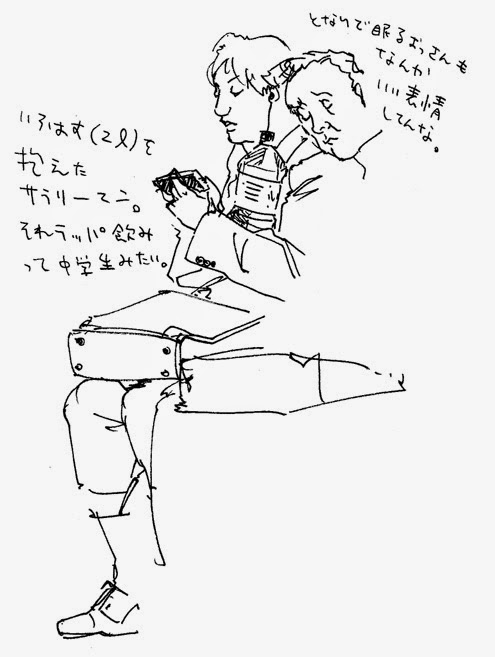 となりで眠るおっさんも
なんか
いい表情
してんな。
いろはす(2ℓ)を
抱えた
サラリーマン。
それラッパ飲み
って中学生みたい。